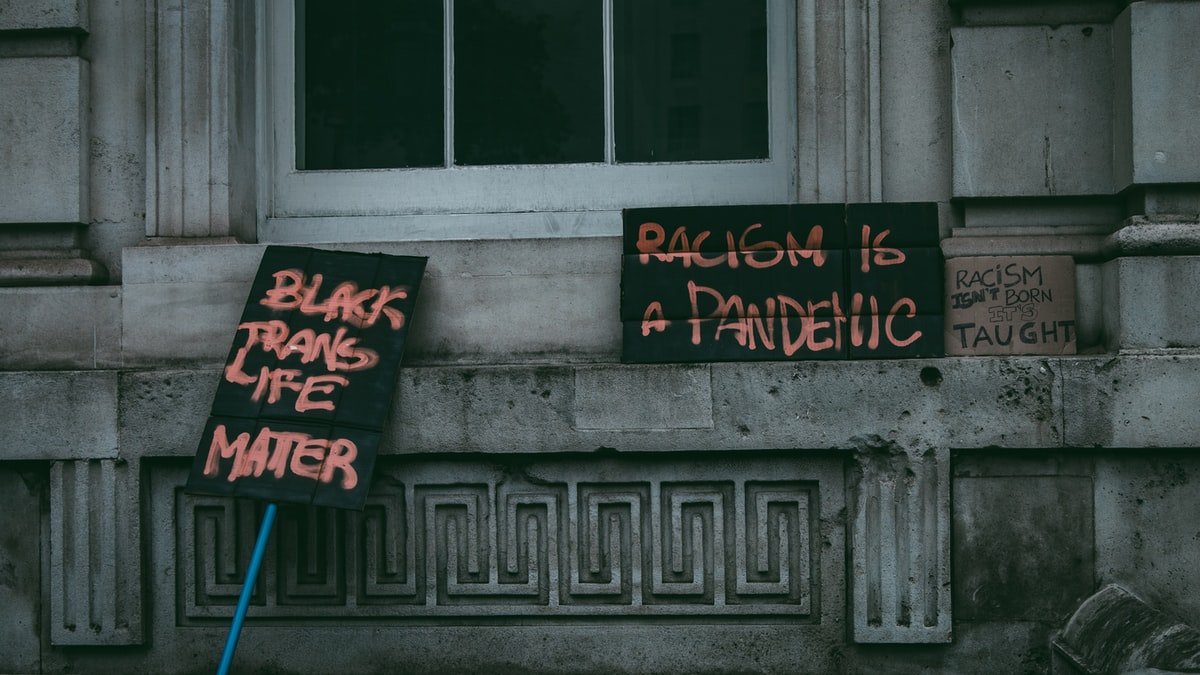 BLACK
TRANS
LIFE
MATTER
RACISM IS
A PANDEMIC
RACISM
ISN'T BORN
IT'S
TAUGHT